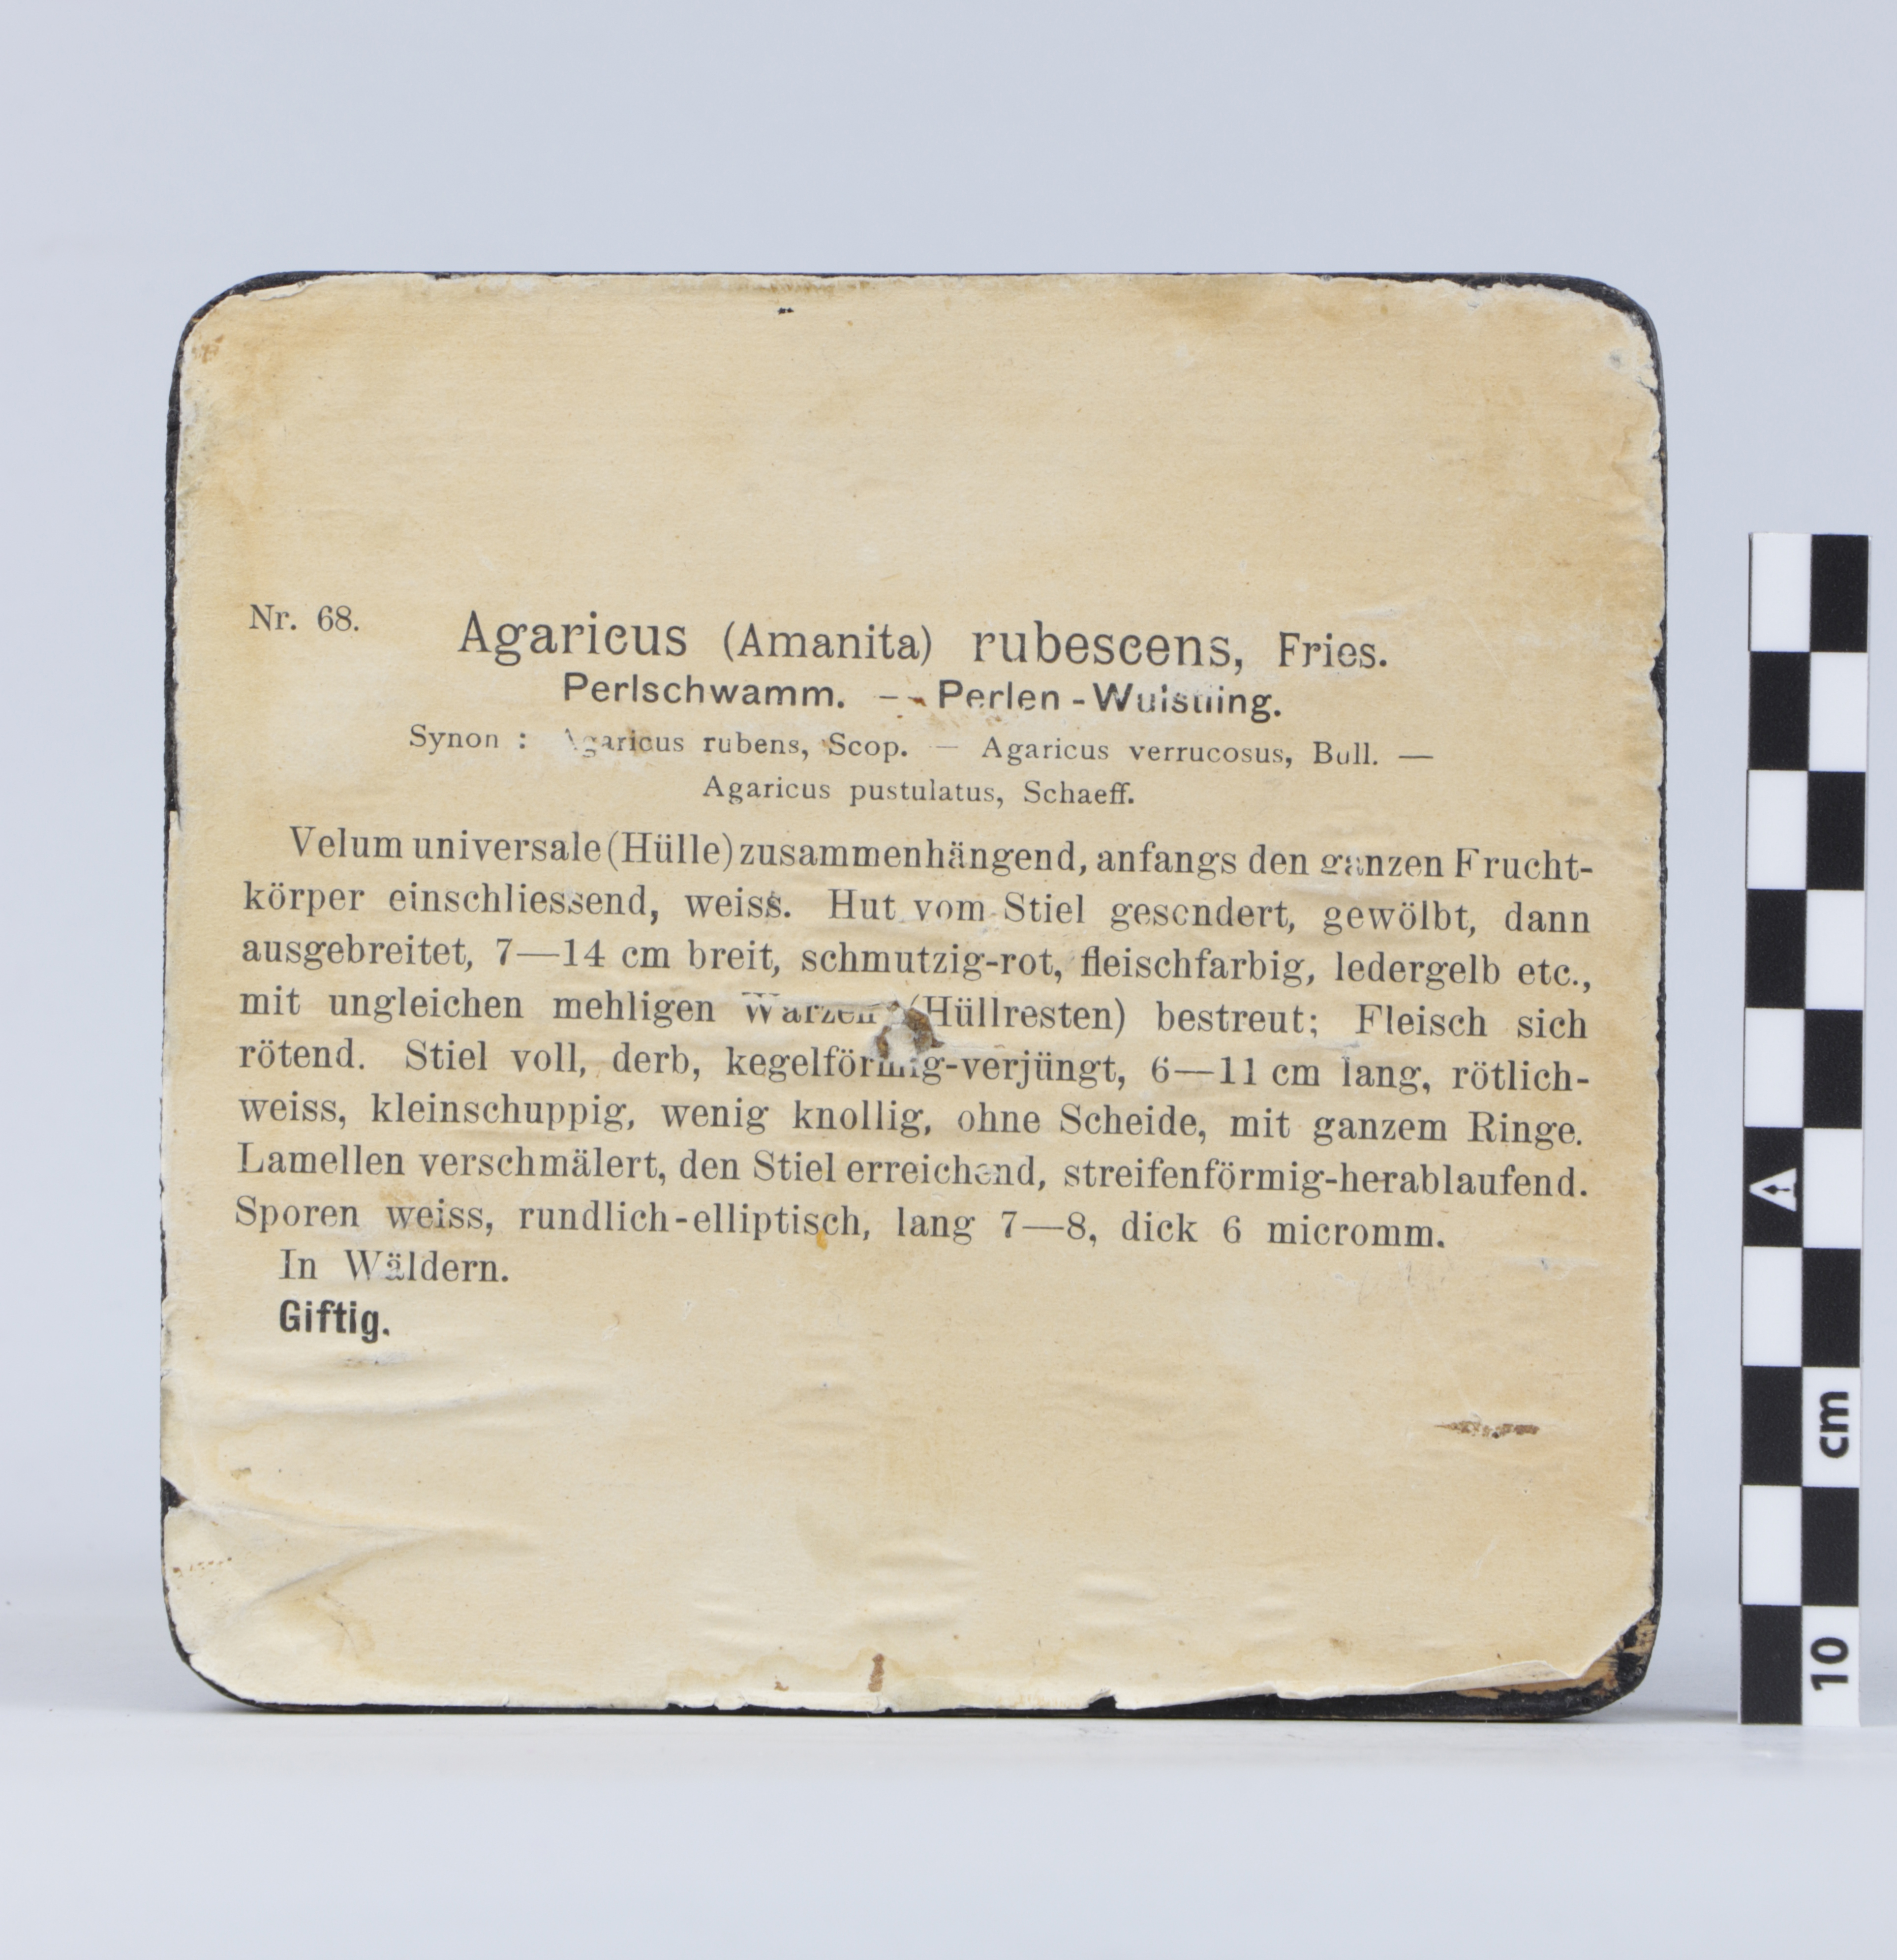 Nr. 68.
Agaricus (Amanita) rubescens, Fries.
Perlschwamm. — Perlen-Wulstling.
Synon : Agaricus rubens, Scop. — Agaricus verrucosus, Bull. —
Agaricus pustulatus, Schaeff.
Velum universale (Hülle) zusammenhängend, anfangs den ganzen Frucht-
körper einschliessend, weiss. Hut vom Stiel gesondert, gewölbt, dann
ausgebreitet, 7—14 cm breit, schmutzig-rot, fleischfarbig, ledergelb etc.,
mit ungleichen mehligen Warzen (Hüllresten) bestreut; Fleisch sich
rötend. Stiel voll, derb, kegelförmig-verjüngt, 6—11 cm lang, rötlich-
weiss, kleinschuppig, wenig knollig, ohne Scheide, mit ganzem Ringe.
Lamellen verschmälert, den Stiel erreichend, streifenförmig-herablaufend.
Sporen weiss, rundlich-elliptisch, lang 7—8, dick 6 micromm.
In Wäldern.
Giftig.
cm
10